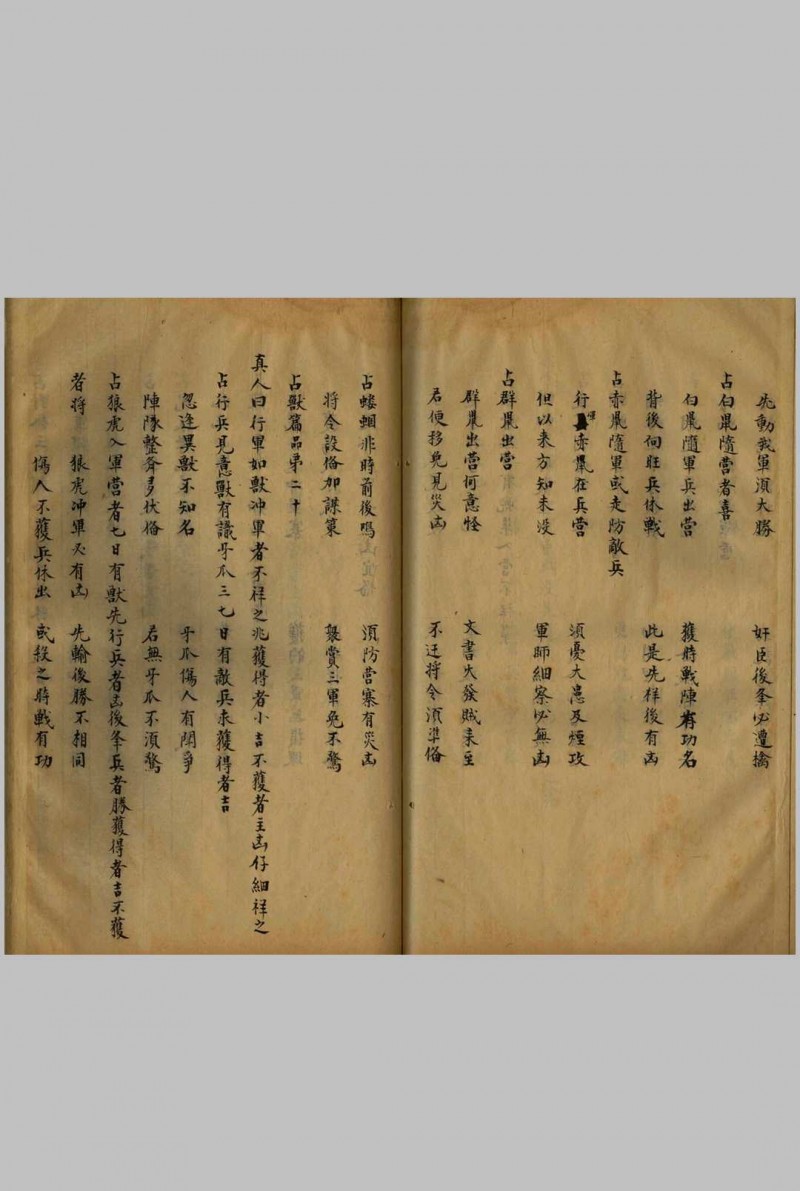 先動我軍須大勝 奸臣後夆必遭擒
占白鼠隨營者喜
白鼠隨軍兵出营 獲時戰陣有功名
背後伺旺兵休戰 此是先祥後有凶
占赤鼠隨軍或走防敵兵
行赤鼠在兵营 須憂大患及煙攻
但以来方知未没 軍師細察必無凶
占群鼠出营
群鼠出营何意怪 文書火發贼来至
君便移免見災凶 不迁将令須準俻
占螻蝈非時前後鳴 須防营寨有災凶
将令設俻加謀策 襃賞三軍免不驚
占獸篇品第二十
真人曰行軍如獸冲軍者不祥之兆獲得者小吉不獲者主凶仔細祥之
占行兵見意獸有議牙爪三七日有敵兵来獲得者吉
忽逢異獸不知名 牙爪傷人有閗爭
陣隊整齐多伏俻 若無牙爪不須驚
占狼虎入軍营者七日有獸先行兵者凶後夆兵者勝獲得者吉不獲
者将 狼虎冲軍必有凶 先輸後勝不相同
傷人不獲兵休出 或殺之時戰有功